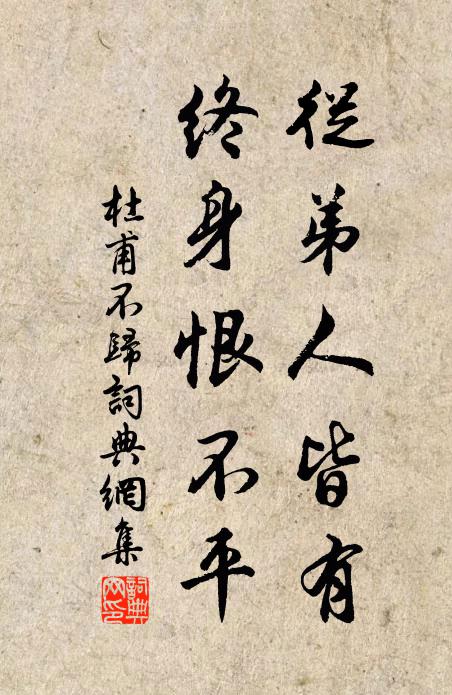 從弟人皆有
終身恨不平
杜甫不歸詞典網集
詞典網印